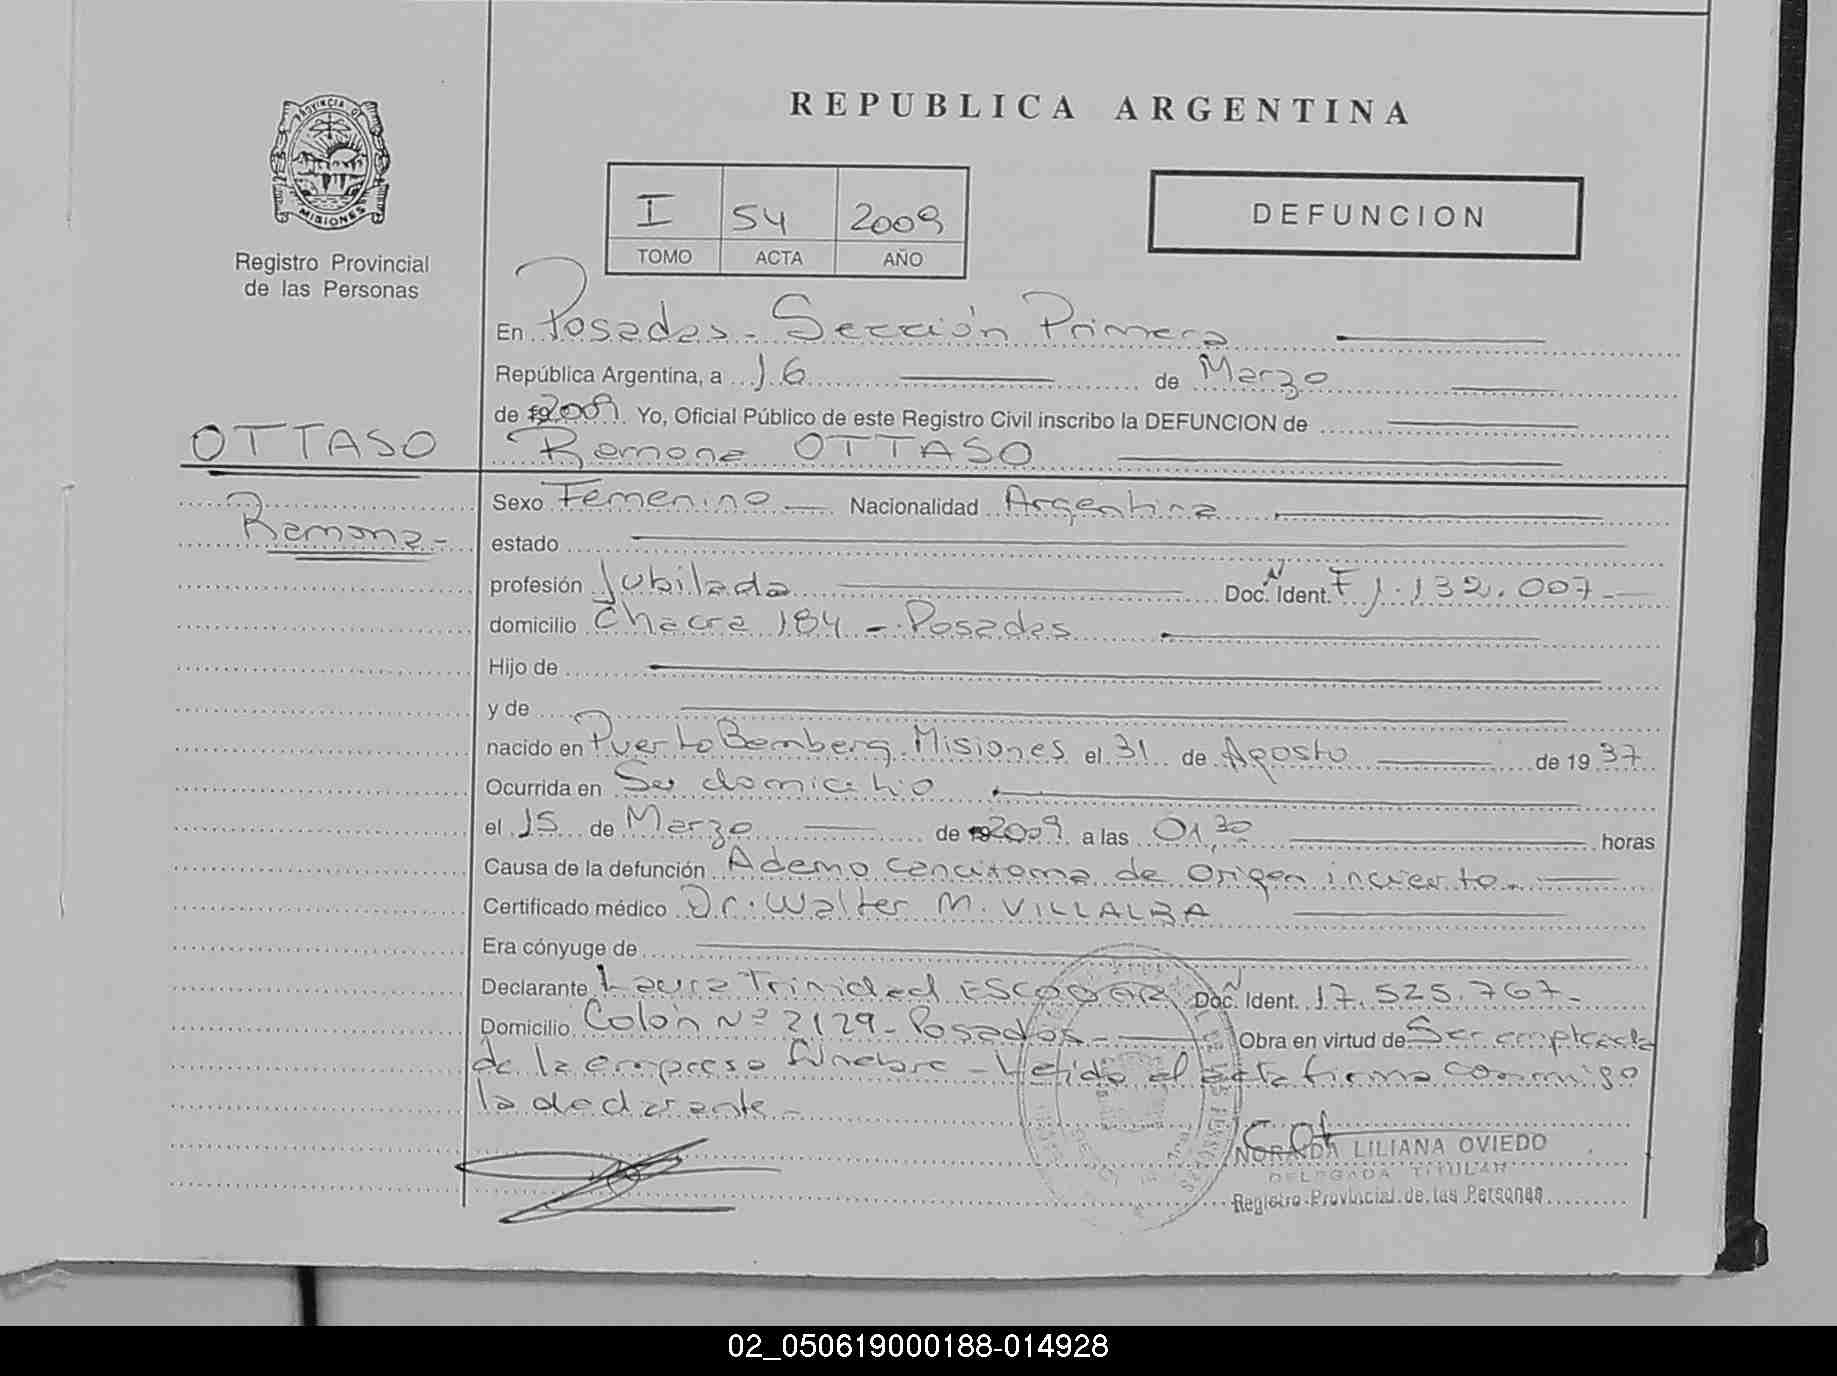 REPUBLICA ARGENTINA
PROVINCIA DE
MISIONES
Registro Provincial
de las Personas
I 54 2009
TOMO ACTA AÑO
DEFUNCION
En Posadas - Sección Primera
República Argentina, a 16 de Marzo
de 2009 Yo, Oficial Público de este Registro Civil inscribo la DEFUNCION de
Ramona OTTASO
OTTASO
Ramona -
Sexo Femenino Nacionalidad Argentina
estado
profesión Jubilada Doc. N Ident. F 1.132.007 -
domicilio Chacra 184 - Posadas
Hijo de
y de
nacido en Puerto Bemberg Misiones el 31 de Agosto de 1937
Ocurrida en Su domicilio
el 15 de Marzo de 2009 a las 01,30 horas
Causa de la defunción Ademo de origen incierto -
Certificado médico Dr. Walter M. VILLALBA
Era cónyuge de
Declarante Laura Trinidad ESCOBAR Doc. N Ident. 17.525.767 -
Domicilio Colón Nº 2129 - Posadas - Obra en virtud de Ser empleada
de la empresa fúnebre - Leída el acta firma conmigo
la declarante -
LILIANA OVIEDO
DELEGADA TITULAR
Registro Provincial de las Personas
02_050619000188-014928